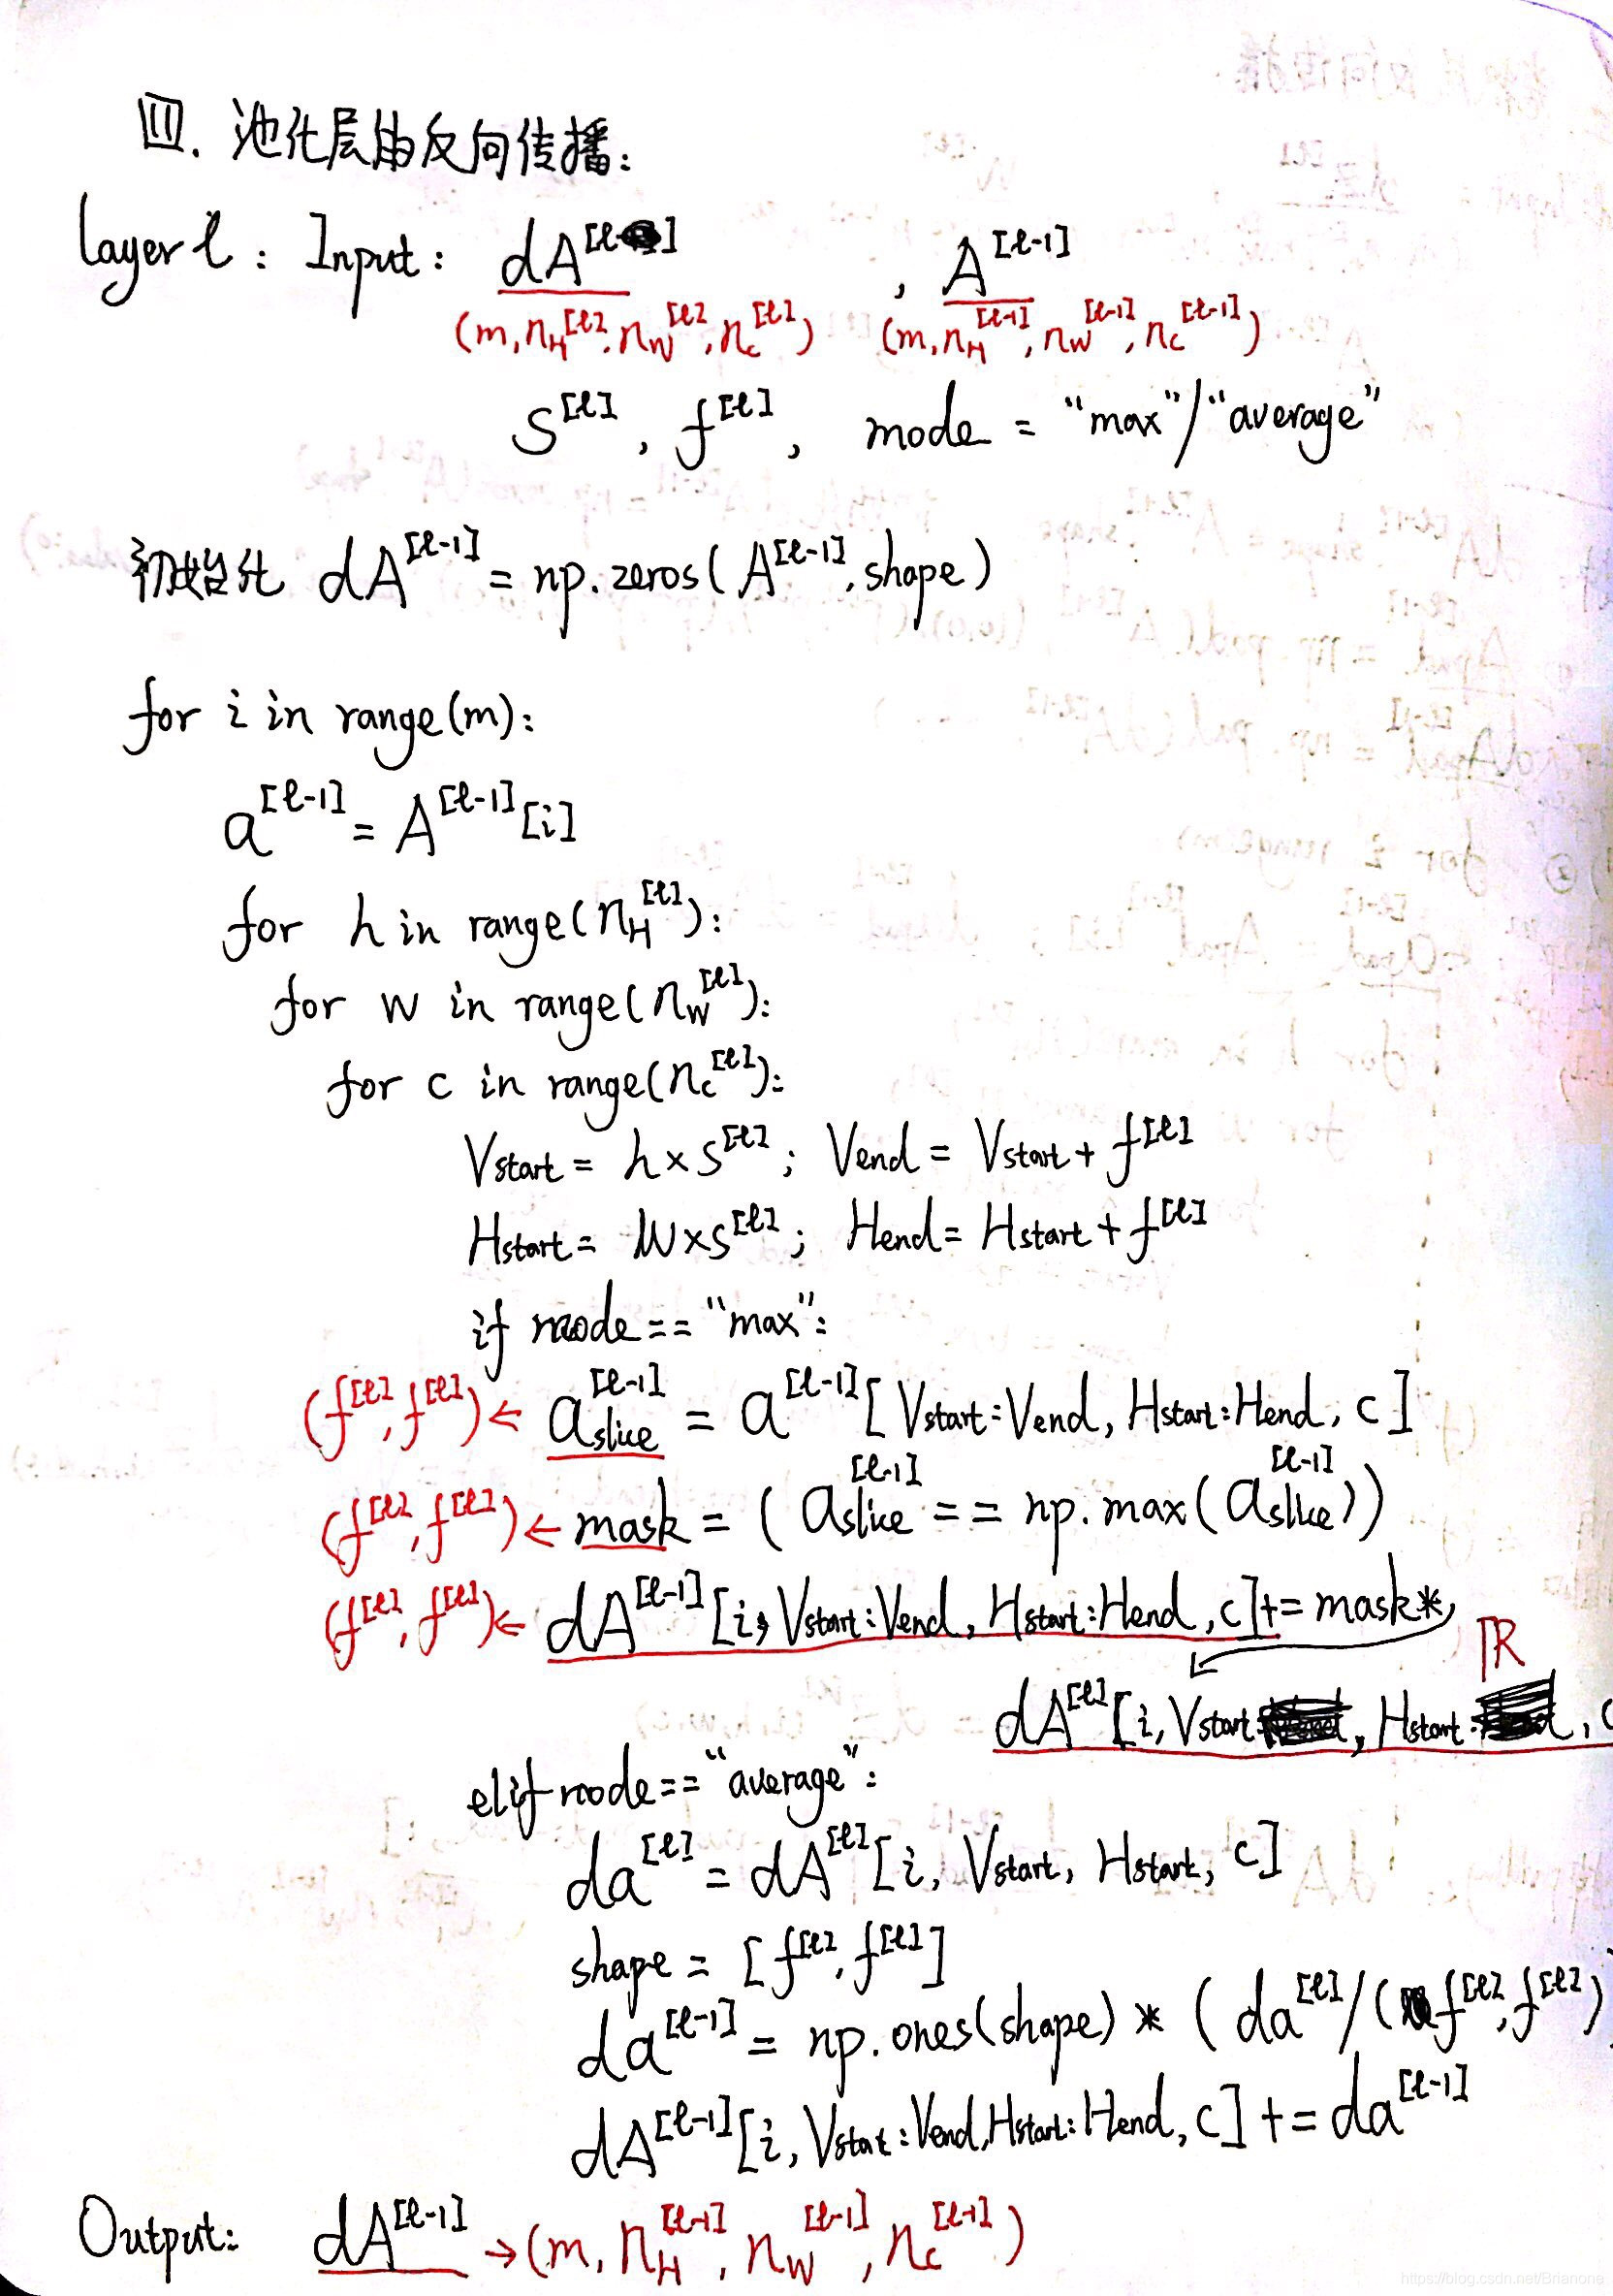 四. 池化层的反向传播:
layer l : Input: dA^[l] , A^[l-1]
(m, n_H^[l], n_W^[l], n_c^[l]) (m, n_H^[l-1], n_W^[l-1], n_c^[l-1])
s^[l] , f^[l] , mode = "max"/"average"
初始化 dA^[l-1] = np.zeros(A^[l-1].shape)
for i in range(m):
a^[l-1] = A^[l-1][i]
for h in range(n_H^[l]):
for w in range(n_W^[l]):
for c in range(n_c^[l]):
Vstart = h×s^[l] ; Vend = Vstart + f^[l]
Hstart = w×s^[l] ; Hend = Hstart + f^[l]
if mode == "max":
(f^[l], f^[l]) ← a_slice^[l-1] = a^[l-1][Vstart:Vend, Hstart:Hend, c]
(f^[l], f^[l]) ← mask = (a_slice^[l-1] == np.max(a_slice^[l-1]))
(f^[l], f^[l]) ← dA^[l-1][i, Vstart:Vend, Hstart:Hend, c] += mask*
ℝ
dA^[l][i, Vstart, Hstart, c
elif mode == "average":
da^[l] = dA^[l][i, Vstart, Hstart, c]
shape = [f^[l], f^[l]]
da^[l-1] = np.ones(shape) * (da^[l]/(f^[l], f^[l])
dA^[l-1][i, Vstart:Vend, Hstart:Hend, c] += da^[l-1]
Output: dA^[l-1] → (m, n_H^[l-1], n_W^[l-1], n_c^[l-1])
https://blog.csdn.net/Brianone